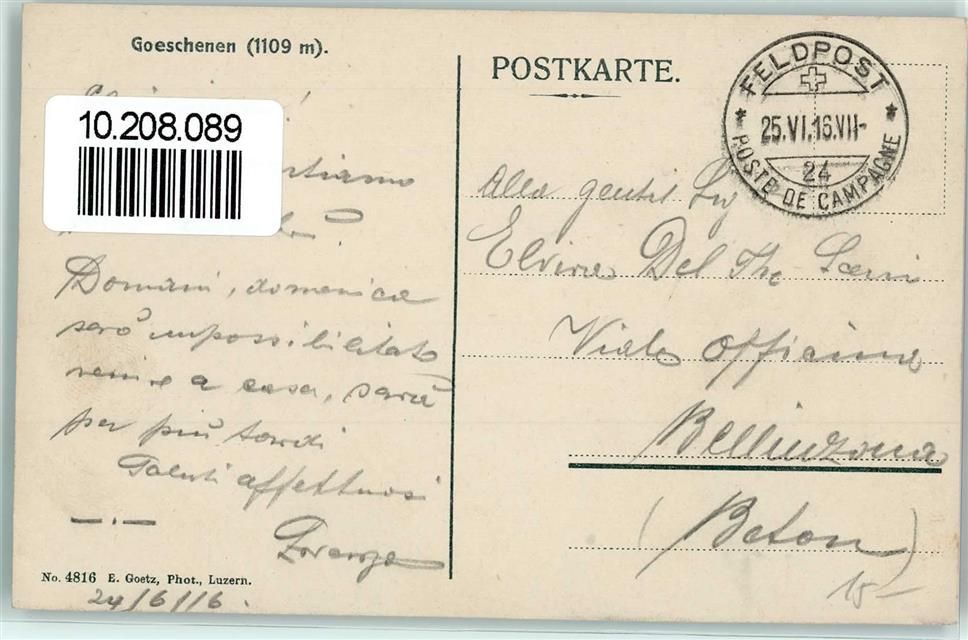 Goeschenen (1109 m).
POSTKARTE.
FELDPOST
25.VI.16.VII-
24
POSTE DE CAMPAGNE
10.208.089
Domani, domenica
sarò impossibilitato
venire a casa, sarà
per più tardi
Saluti affettuosi
Lorenzo
Alla gentil Sig
Elvira Del Thè
Viale Officina
Bellinzona
(Beton)
15-
No. 4816 E. Goetz, Phot., Luzern.
24/6/16.